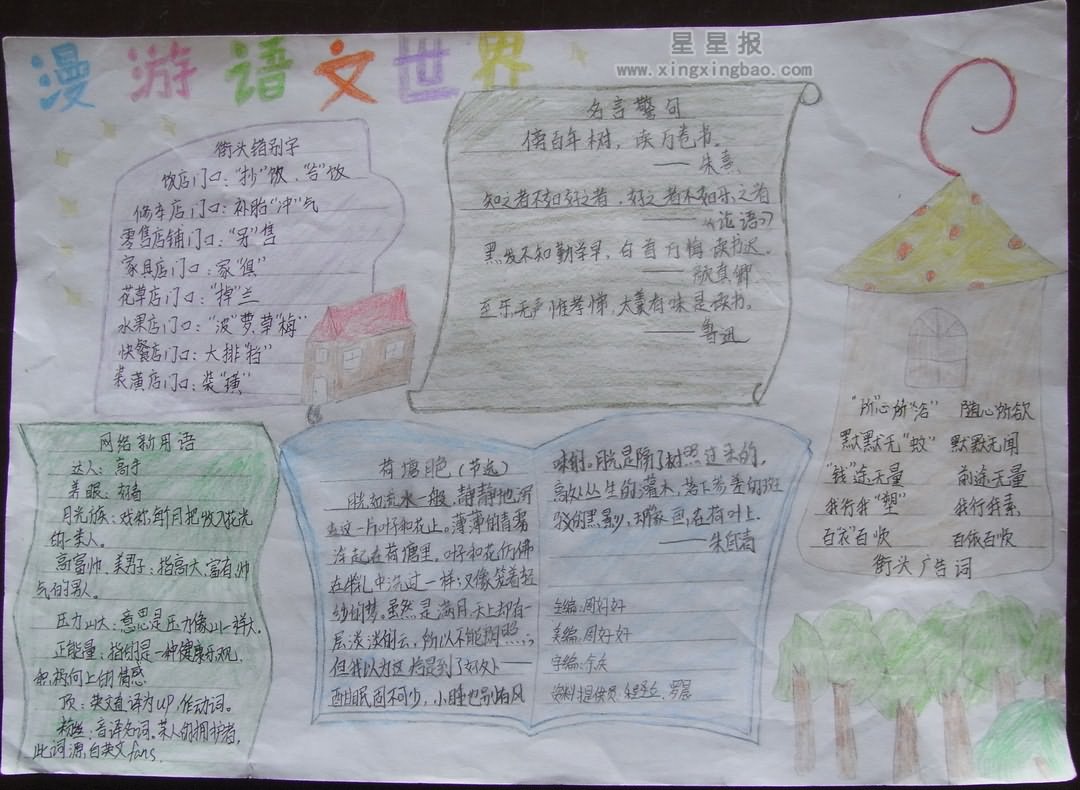 漫游语文世界
星星报
www.xingxingbao.com
街头错别字
饭店门口:“抄”饭、“合”饭
修车店门口:补胎“冲”气
零售店铺门口:“另”售
家具店门口:家“俱”
花草店门口:“掉”兰
水果店门口:“波”萝,草“梅”
快餐店门口:大排“档”
装潢店门口:装“璜”
名言警句
倚百年树,读万卷书。
——朱熹
知之者不如好之者,好之者不如乐之者
——《论语》
黑发不知勤学早,白首方悔读书迟。
——颜真卿
至乐无声惟孝悌,太羹有味是读书。
——鲁迅
“所”心所“洽” 随心所欲
默默无“蚊” 默默无闻
“钱”途无量 前途无量
我行我“塑” 我行我素
百衣百顺 百依百顺
街头广告词
网络新用语
达人:高手
养眼:好看
月光族:戏称每月把收入花光
的人。
高富帅、美男子:指高大,富有,帅
气的男人。
压力山大:意思是压力像山一样大。
正能量:指的是一种健康乐观,
积极向上的情感
顶:英文直译为UP,作动词。
粉丝:音译名词。某人的拥护者,
此词源自英文fans.
荷塘月色(节选)
月光如流水一般,静静地泻
在这一片叶和花上。薄薄的青雾
浮起在荷塘里。叶子和花仿佛
在牛乳中洗过一样;又像笼着轻
纱的梦。虽然是满月,天上却有一
层淡淡的云,所以不能朗照;
但我以为这恰是到了好处——
酣眠固不可少,小睡也别有风
味的。月光是隔了树照过来的,
高处丛生的灌木,落下参差的斑
驳的黑影,却像画在荷叶上.
——朱自清
主编:周好好
美编:周好好
字编:
资料提供员: